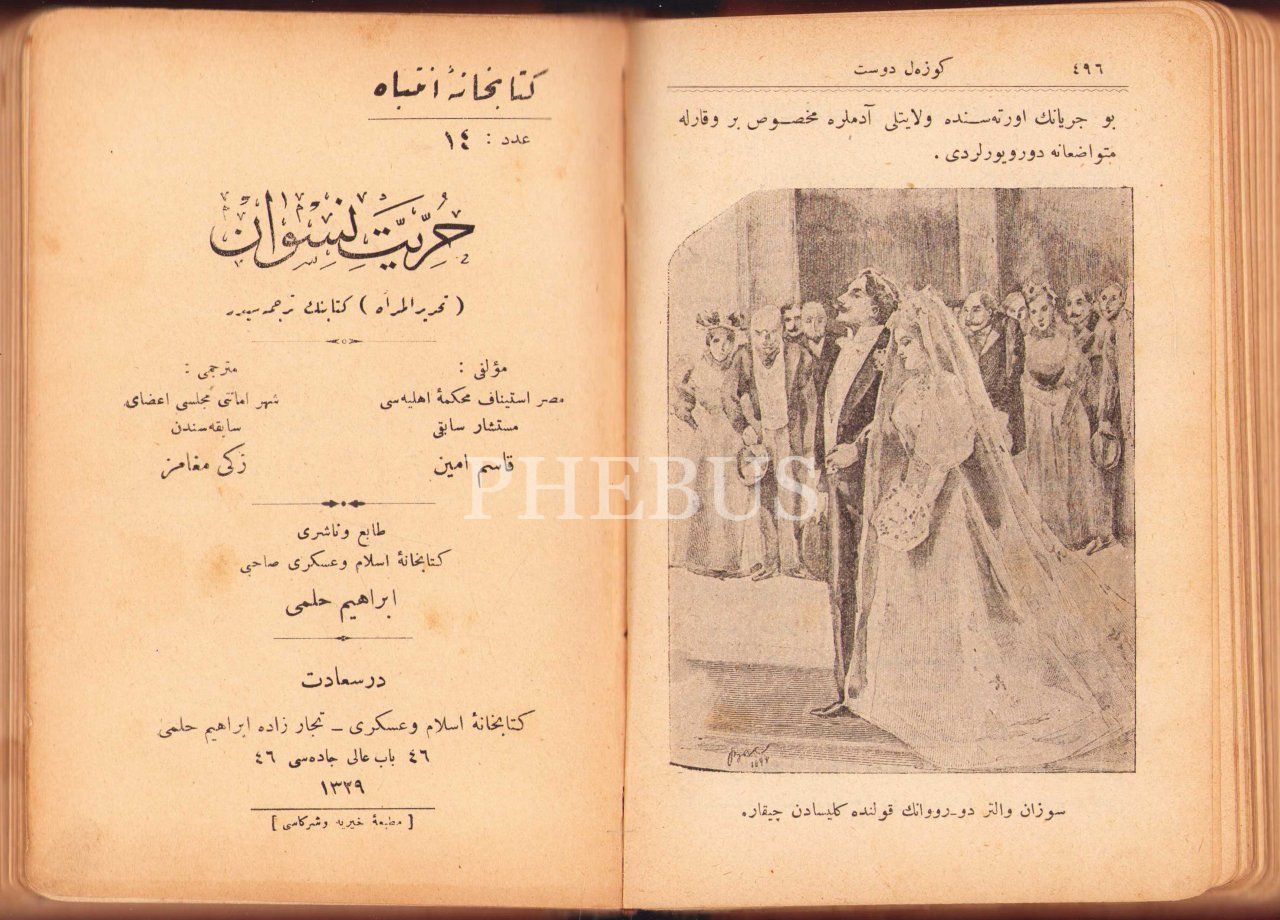 ٤٩٦
كوزەل دوست
بو جريانك اورته‌سنده ولايتلى آدملره مخصوص بر وقارله
متواضعانه دورويورلردى .
سوزان والتر دو-رووانك قولنده كليسادن چيقاره
كتابخانۀ انتباه
عدد : ١٤
حُرِّيَّت نِسْوان
( تحرير المرأه ) كتابنك ترجمه‌سيدر
مؤلفى :
مصر استيناف محكمۀ اهليه‌سى
مستشار سابقى
قاسم امين
مترجمى :
شهر امانتى مجلسى اعضاى
سابقه‌سندن
زكى مغامز
طابع وناشرى
كتابخانۀ اسلام وعسكرى صاحبى
ابراهيم حلمى
درسعادت
كتابخانۀ اسلام وعسكرى – تجار زاده ابراهيم حلمى
٤٦ باب عالى جاده‌سى ٤٦
١٣٢٩
[ مطبعۀ خيريه وشركاسى ]
PHEBUS